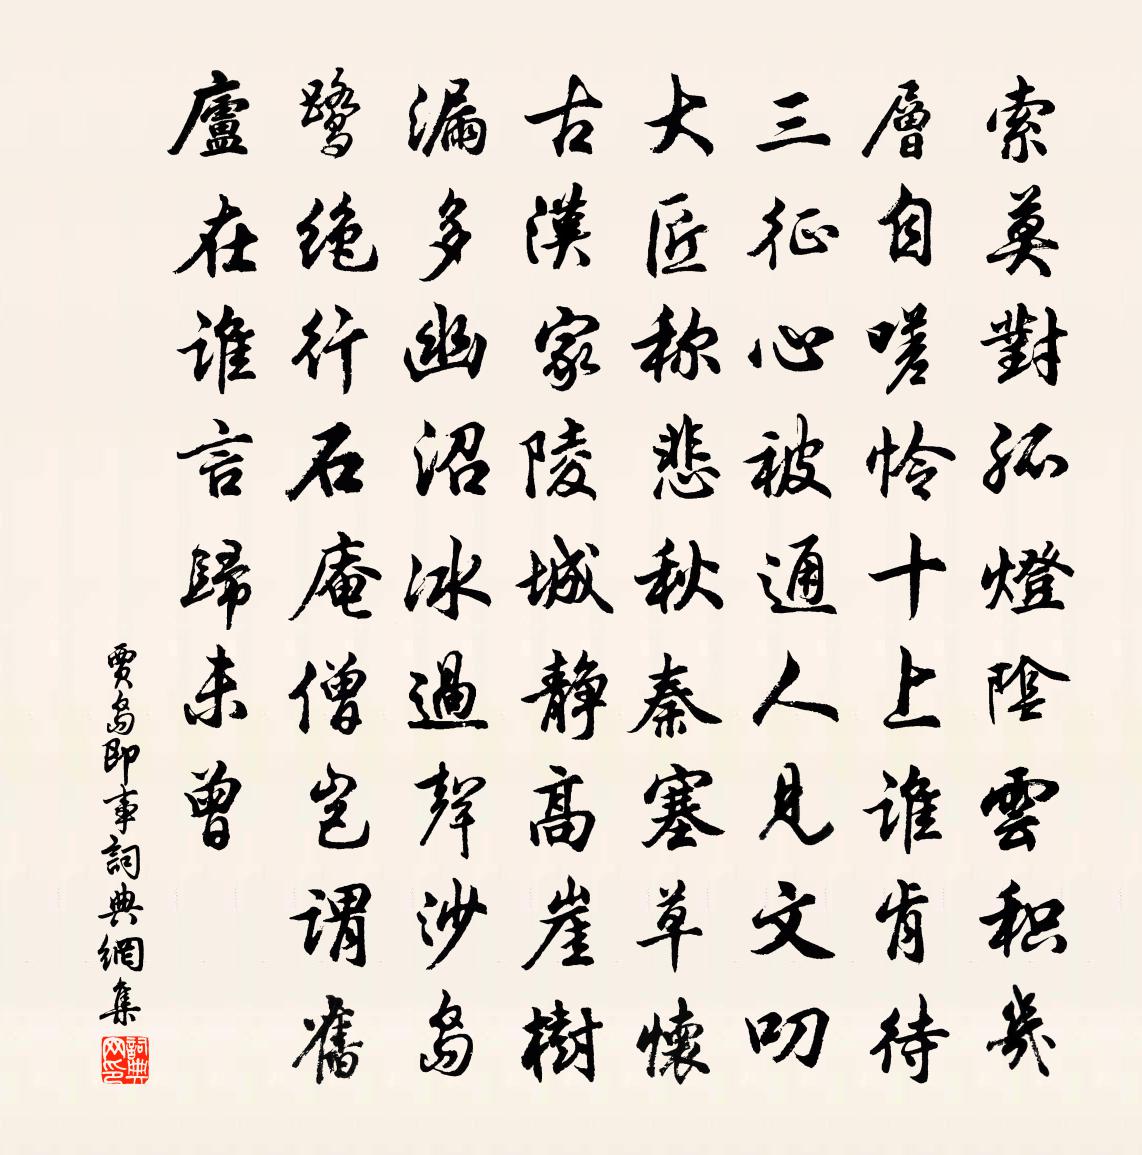 索莫對孤燈陰雲积幾
層自嗟怜十上誰肯待
三征心被通人見文叨
大匠称悲秋秦塞草懷
古漢家陵城静高崖樹
漏多幽沼冰過聲沙島
鹭绝行石庵僧岂謂舊
廬在誰言歸未曾
賈島即事詞典網集
詞典网印